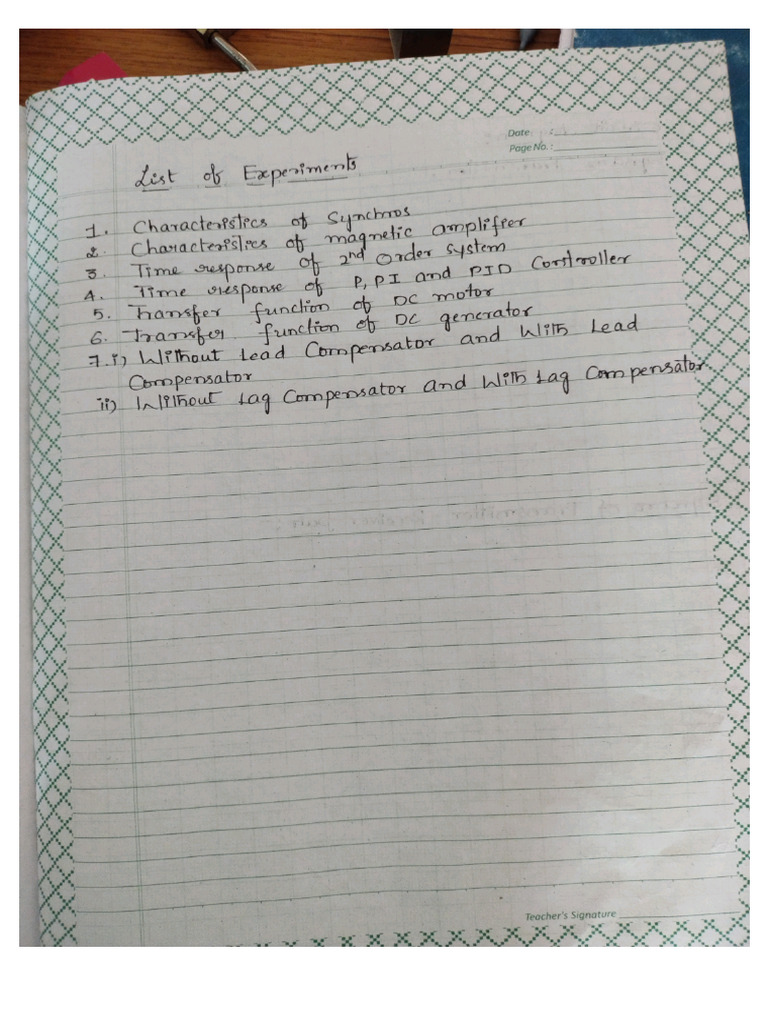 Date :
Page No. :
List of Experiments
1. Characteristics of Synchros
2. Characteristics of magnetic amplifier
3. Time response of 2nd Order System
4. Time response of P, PI and PID Controller
5. Transfer function of DC motor
6. Transfer function of DC generator
7. i) Without Lead Compensator and With Lead
Compensator
ii) Without Lag Compensator and With Lag Compensator
Teacher's Signature